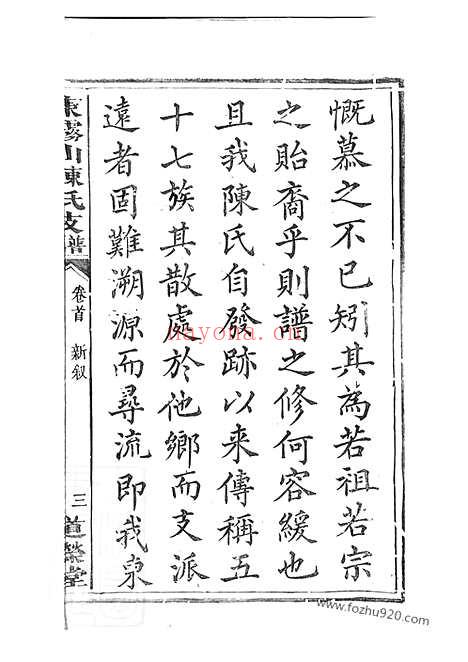 慨慕之不已矧其為若祖若宗
之貽裔乎則譜之修何容緩也
且我陳氏自發跡以来傳稱五
十七族其散處於他鄉而支派
遠者固難溯源而尋流即我東
東霧山陳氏支譜
卷首 新叙
三
道榮堂
nayona.cn
www.fozhu920.com